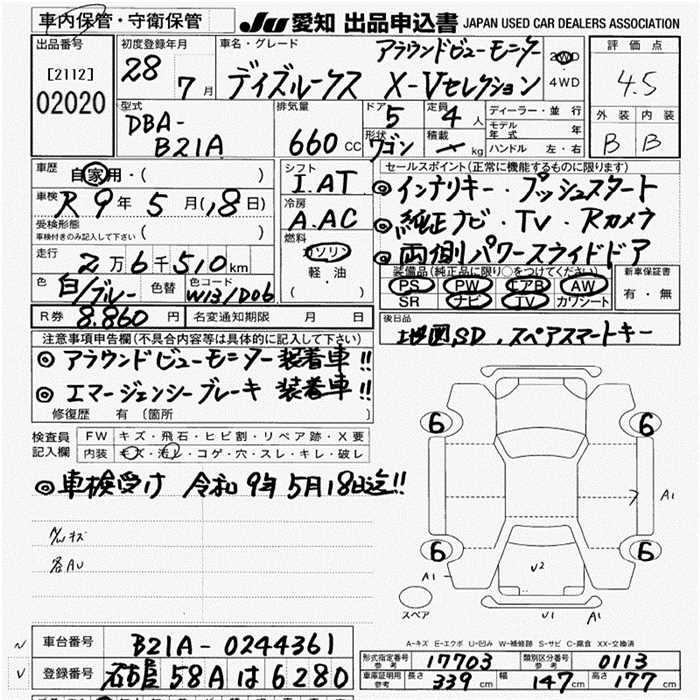 車内保管・守衛保管
JU 愛知 出品申込書 JAPAN USED CAR DEALERS ASSOCIATION
出品番号
[2112]
02020
初度登録年月
28年 7月
車名・グレード
アラウンドビューモニター
デイズルークス X-Vセレクション
2WD
4WD
評価点
4.5
外装 内装
B B
型式
DBA-
B21A
排気量
660 CC
ドア 5
定員 4 人
形状 ワゴン
積載 kg
ディーラー・並行
モデル年式 年
ハンドル 左・右
車歴
自家用・( )
車検
R 9年 5月(18日)
受検形態
車検付きのみ記入して下さい ( )
走行
2万6千510km
色 白/ブルー 色替 色コード W13/D06
R券 8.860 円 名変通知期限 月 日
シフト
I.AT
冷房
A.AC
燃料
ガソリン
軽油
( )
セールスポイント(正常に機能するものに限ります)
◎インテリキー・プッシュスタート
◎純正ナビ・TV・Rカメラ
◎両側パワースライドドア
装備品(純正品に限り○をつけてください)
PS PW エアB AW
SR ナビ TV カワシート
新車保証書
有・無
後日品
地図SD、スペアスマートキー
注意事項申告欄(不具合内容等は具体的に記入して下さい)
◎アラウンドビューモニター装着車!!
◎エマージェンシーブレーキ 装着車!!
修復歴 有 (箇所 )
検査員記入欄
FW キズ・飛石・ヒビ割・リペア跡・X要
内装 キズ・汚レ・コゲ・穴・スレ・キレ・破レ
◎車検受け 令和9年5月18日迄!!
各AU
6 6
A1
6 6
A1 U2
スペア
U1 A1
A-キズ E-エクボ U-凹み W-補修跡 S-サビ C-腐食 XX-交換済
車台番号 B21A-0244361
登録番号 名古屋 58A は 6280
形式指定番号 参考 17703
類別区分番号 参考 0113
車庫証明用 参考 長さ 339cm 幅 147cm 高さ 177cm